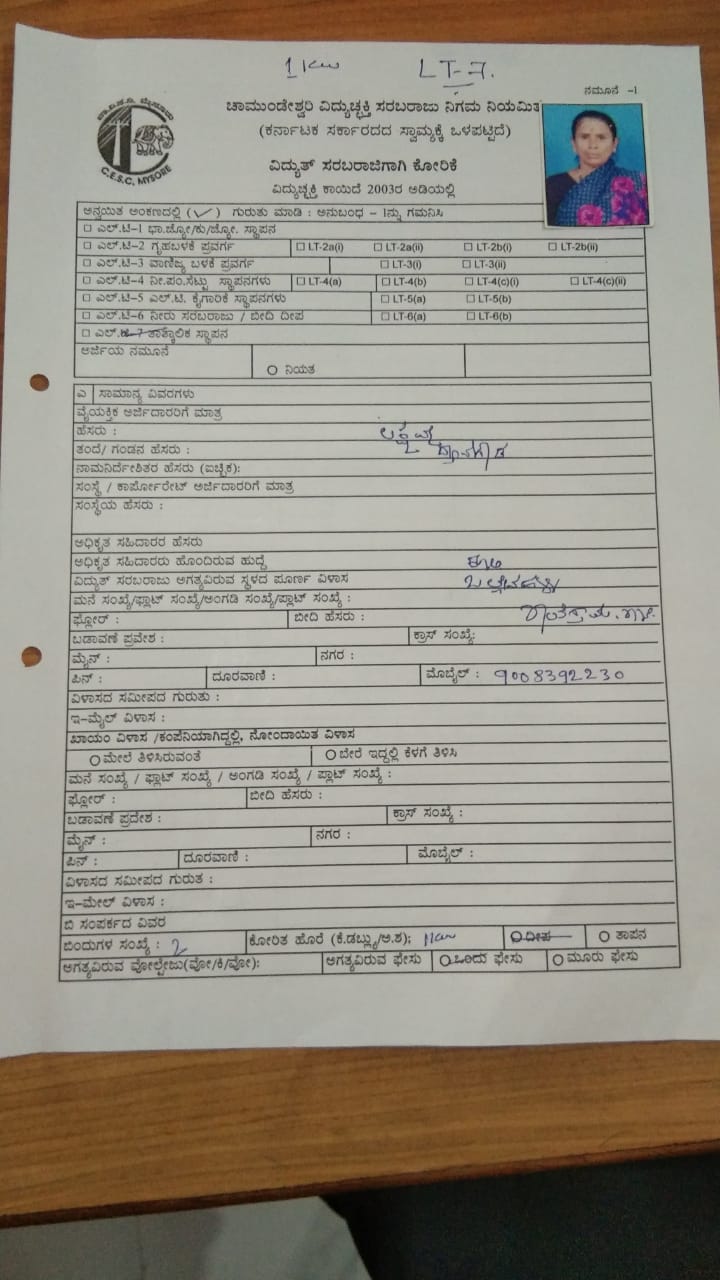 1 kw LT-7.
ನಮೂನೆ -1
ಚಾಮುಂಡೇಶ್ವರಿ ವಿದ್ಯುಚ್ಛಕ್ತಿ ಸರಬರಾಜು ನಿಗಮ ನಿಯಮಿತ
(ಕರ್ನಾಟಕ ಸರ್ಕಾರದದ ಸ್ವಾಮ್ಯಕ್ಕೆ ಒಳಪಟ್ಟಿದೆ)
C.E.S.C, MYSORE
ವಿದ್ಯುತ್ ಸರಬರಾಜಿಗಾಗಿ ಕೋರಿಕೆ
ವಿದ್ಯುಚ್ಛಕ್ತಿ ಕಾಯಿದೆ 2003ರ ಅಡಿಯಲ್ಲಿ
ಅನ್ವಯಿತ ಅಂಕಣದಲ್ಲಿ (✓) ಗುರುತು ಮಾಡಿ : ಅನುಬಂಧ - 1ನ್ನು ಗಮನಿಸಿ
☐ ಎಲ್.ಟಿ-1 ಭಾ.ಜ್ಯೋ/ಕು/ಜ್ಯೋ. ಸ್ಥಾಪನ
☐ ಎಲ್.ಟಿ-2 ಗೃಹಬಳಕೆ ಪ್ರವರ್ಗ ☐ LT-2a(i) ☐ LT-2a(ii) ☐ LT-2b(i) ☐ LT-2b(ii)
☐ ಎಲ್.ಟಿ-3 ವಾಣಿಜ್ಯ ಬಳಕೆ ಪ್ರವರ್ಗ ☐ LT-3(i) ☐ LT-3(ii)
☐ ಎಲ್.ಟಿ-4 ನೀ.ಪಂ.ಸೆಟ್ಟು ಸ್ಥಾಪನಗಳು ☐ LT-4(a) ☐ LT-4(b) ☐ LT-4(c)(i) ☐ LT-4(c)(ii)
☐ ಎಲ್.ಟಿ-5 ಎಲ್.ಟಿ. ಕೈಗಾರಿಕೆ ಸ್ಥಾಪನಗಳು ☐ LT-5(a) ☐ LT-5(b)
☐ ಎಲ್.ಟಿ-6 ನೀರು ಸರಬರಾಜು / ಬೀದಿ ದೀಪ ☐ LT-6(a) ☐ LT-6(b)
☐ ಎಲ್.ಟಿ-7 ತಾತ್ಕಾಲಿಕ ಸ್ಥಾಪನ
ಅರ್ಜಿಯ ನಮೂನೆ
○ ನಿಯತ
ಎ ಸಾಮಾನ್ಯ ವಿವರಗಳು
ವೈಯಕ್ತಿಕ ಅರ್ಜಿದಾರರಿಗೆ ಮಾತ್ರ
ಹೆಸರು :
ತಂದೆ/ ಗಂಡನ ಹೆಸರು :
ನಾಮನಿರ್ದೇಶಿತರ ಹೆಸರು (ಐಚ್ಛಿಕ):
ಸಂಸ್ಥೆ / ಕಾರ್ಪೋರೇಟ್ ಅರ್ಜಿದಾರರಿಗೆ ಮಾತ್ರ
ಸಂಸ್ಥೆಯ ಹೆಸರು :
ಅಧಿಕೃತ ಸಹಿದಾರರ ಹೆಸರು
ಅಧಿಕೃತ ಸಹಿದಾರರು ಹೊಂದಿರುವ ಹುದ್ದೆ
ವಿದ್ಯುತ್ ಸರಬರಾಜು ಅಗತ್ಯವಿರುವ ಸ್ಥಳದ ಪೂರ್ಣ ವಿಳಾಸ
ಮನೆ ಸಂಖ್ಯೆ/ಫ್ಲಾಟ್ ಸಂಖ್ಯೆ/ಅಂಗಡಿ ಸಂಖ್ಯೆ/ಪ್ಲಾಟ್ ಸಂಖ್ಯೆ :
ಫ್ಲೋರ್ : ಬೀದಿ ಹೆಸರು :
ಬಡಾವಣೆ ಪ್ರವೇಶ : ಕ್ರಾಸ್ ಸಂಖ್ಯೆ:
ಮೈನ್ : ನಗರ :
ಪಿನ್ : ದೂರವಾಣಿ : ಮೊಬೈಲ್ : 9008392230
ವಿಳಾಸದ ಸಮೀಪದ ಗುರುತು :
ಇ-ಮೈಲ್ ವಿಳಾಸ :
ಖಾಯಂ ವಿಳಾಸ /ಕಂಪೆನಿಯಾಗಿದ್ದಲ್ಲಿ, ನೋಂದಾಯಿತ ವಿಳಾಸ
○ ಮೇಲೆ ತಿಳಿಸಿರುವಂತೆ ○ ಬೇರೆ ಇದ್ದಲ್ಲಿ ಕೆಳಗೆ ತಿಳಿಸಿ
ಮನೆ ಸಂಖ್ಯೆ / ಫ್ಲಾಟ್ ಸಂಖ್ಯೆ / ಅಂಗಡಿ ಸಂಖ್ಯೆ / ಪ್ಲಾಟ್ ಸಂಖ್ಯೆ :
ಫ್ಲೋರ್ : ಬೀದಿ ಹೆಸರು :
ಬಡಾವಣೆ ಪ್ರದೇಶ : ಕ್ರಾಸ್ ಸಂಖ್ಯೆ :
ಮೈನ್ : ನಗರ :
ಪಿನ್ : ದೂರವಾಣಿ : ಮೊಬೈಲ್ :
ವಿಳಾಸದ ಸಮೀಪದ ಗುರುತ :
ಇ-ಮೇಲ್ ವಿಳಾಸ :
ಬಿ ಸಂಪರ್ಕದ ವಿವರ
ಬಿಂದುಗಳ ಸಂಖ್ಯೆ : 2 ಕೋರಿತ ಹೊರೆ (ಕೆ.ಡಬ್ಲ್ಯು/ಅ.ಶ); 1kw ○ ದೀಪ ○ ತಾಪನ
ಅಗತ್ಯವಿರುವ ವೋಲ್ಟೇಜು(ವೋ/ಕಿ/ವೋ): ಅಗತ್ಯವಿರುವ ಫೇಸು ○ ಒಂದು ಫೇಸು ○ ಮೂರು ಫೇಸು